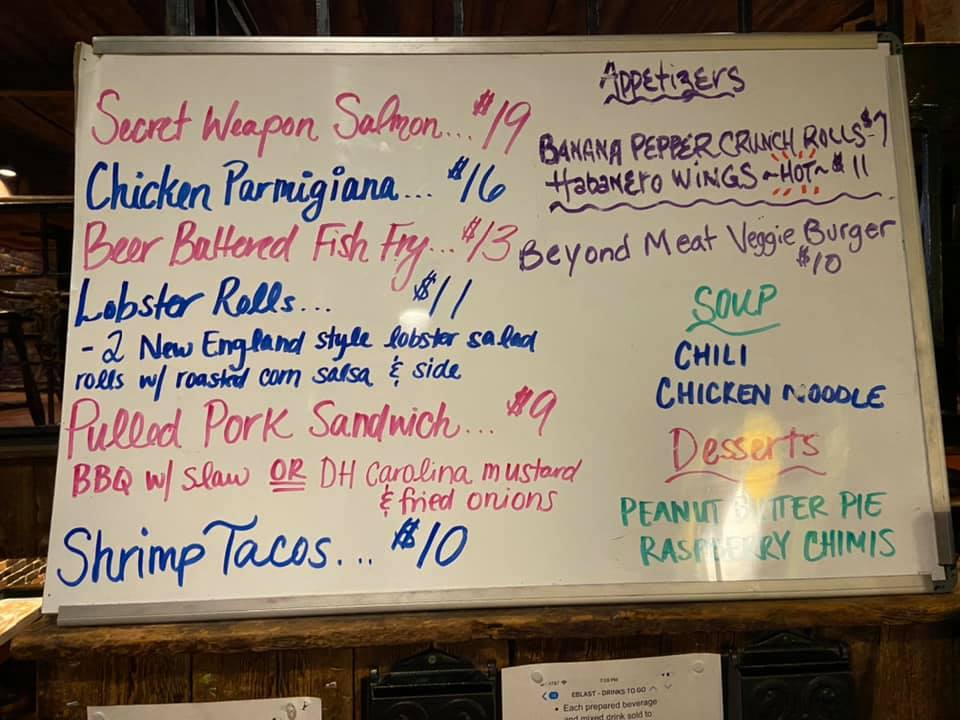 Secret Weapon Salmon... $19
Chicken Parmigiana... $16
Beer Battered Fish Fry... $13
Lobster Rolls... $11
- 2 New England style lobster salad
rolls w/ roasted corn salsa & side
Pulled Pork Sandwich... $9
BBQ w/ slaw OR DH Carolina mustard
& fried onions
Shrimp Tacos... $10
Appetizers
BANANA PEPPER CRUNCH ROLLS-$7
Habanero WINGS ~HOT~ $11
Beyond Meat Veggie Burger
$10
SOUP
CHILI
CHICKEN NOODLE
Desserts
PEANUT BUTTER PIE
RASPBERRY CHIMIS
AT&T 7:59 PM
EBLAST - DRINKS TO GO
• Each prepared beverage
and mixed drink sold to